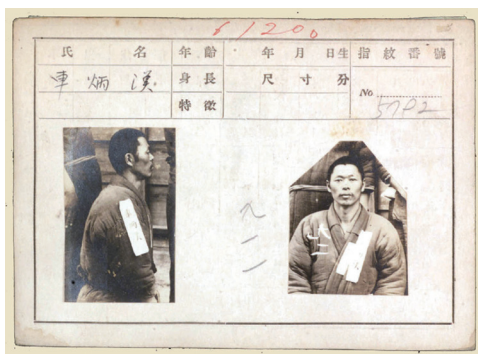 61200
氏名 年齡 年月日生 指紋番號
車炳漢 身長 尺寸分 No 5702
特徵
九一一